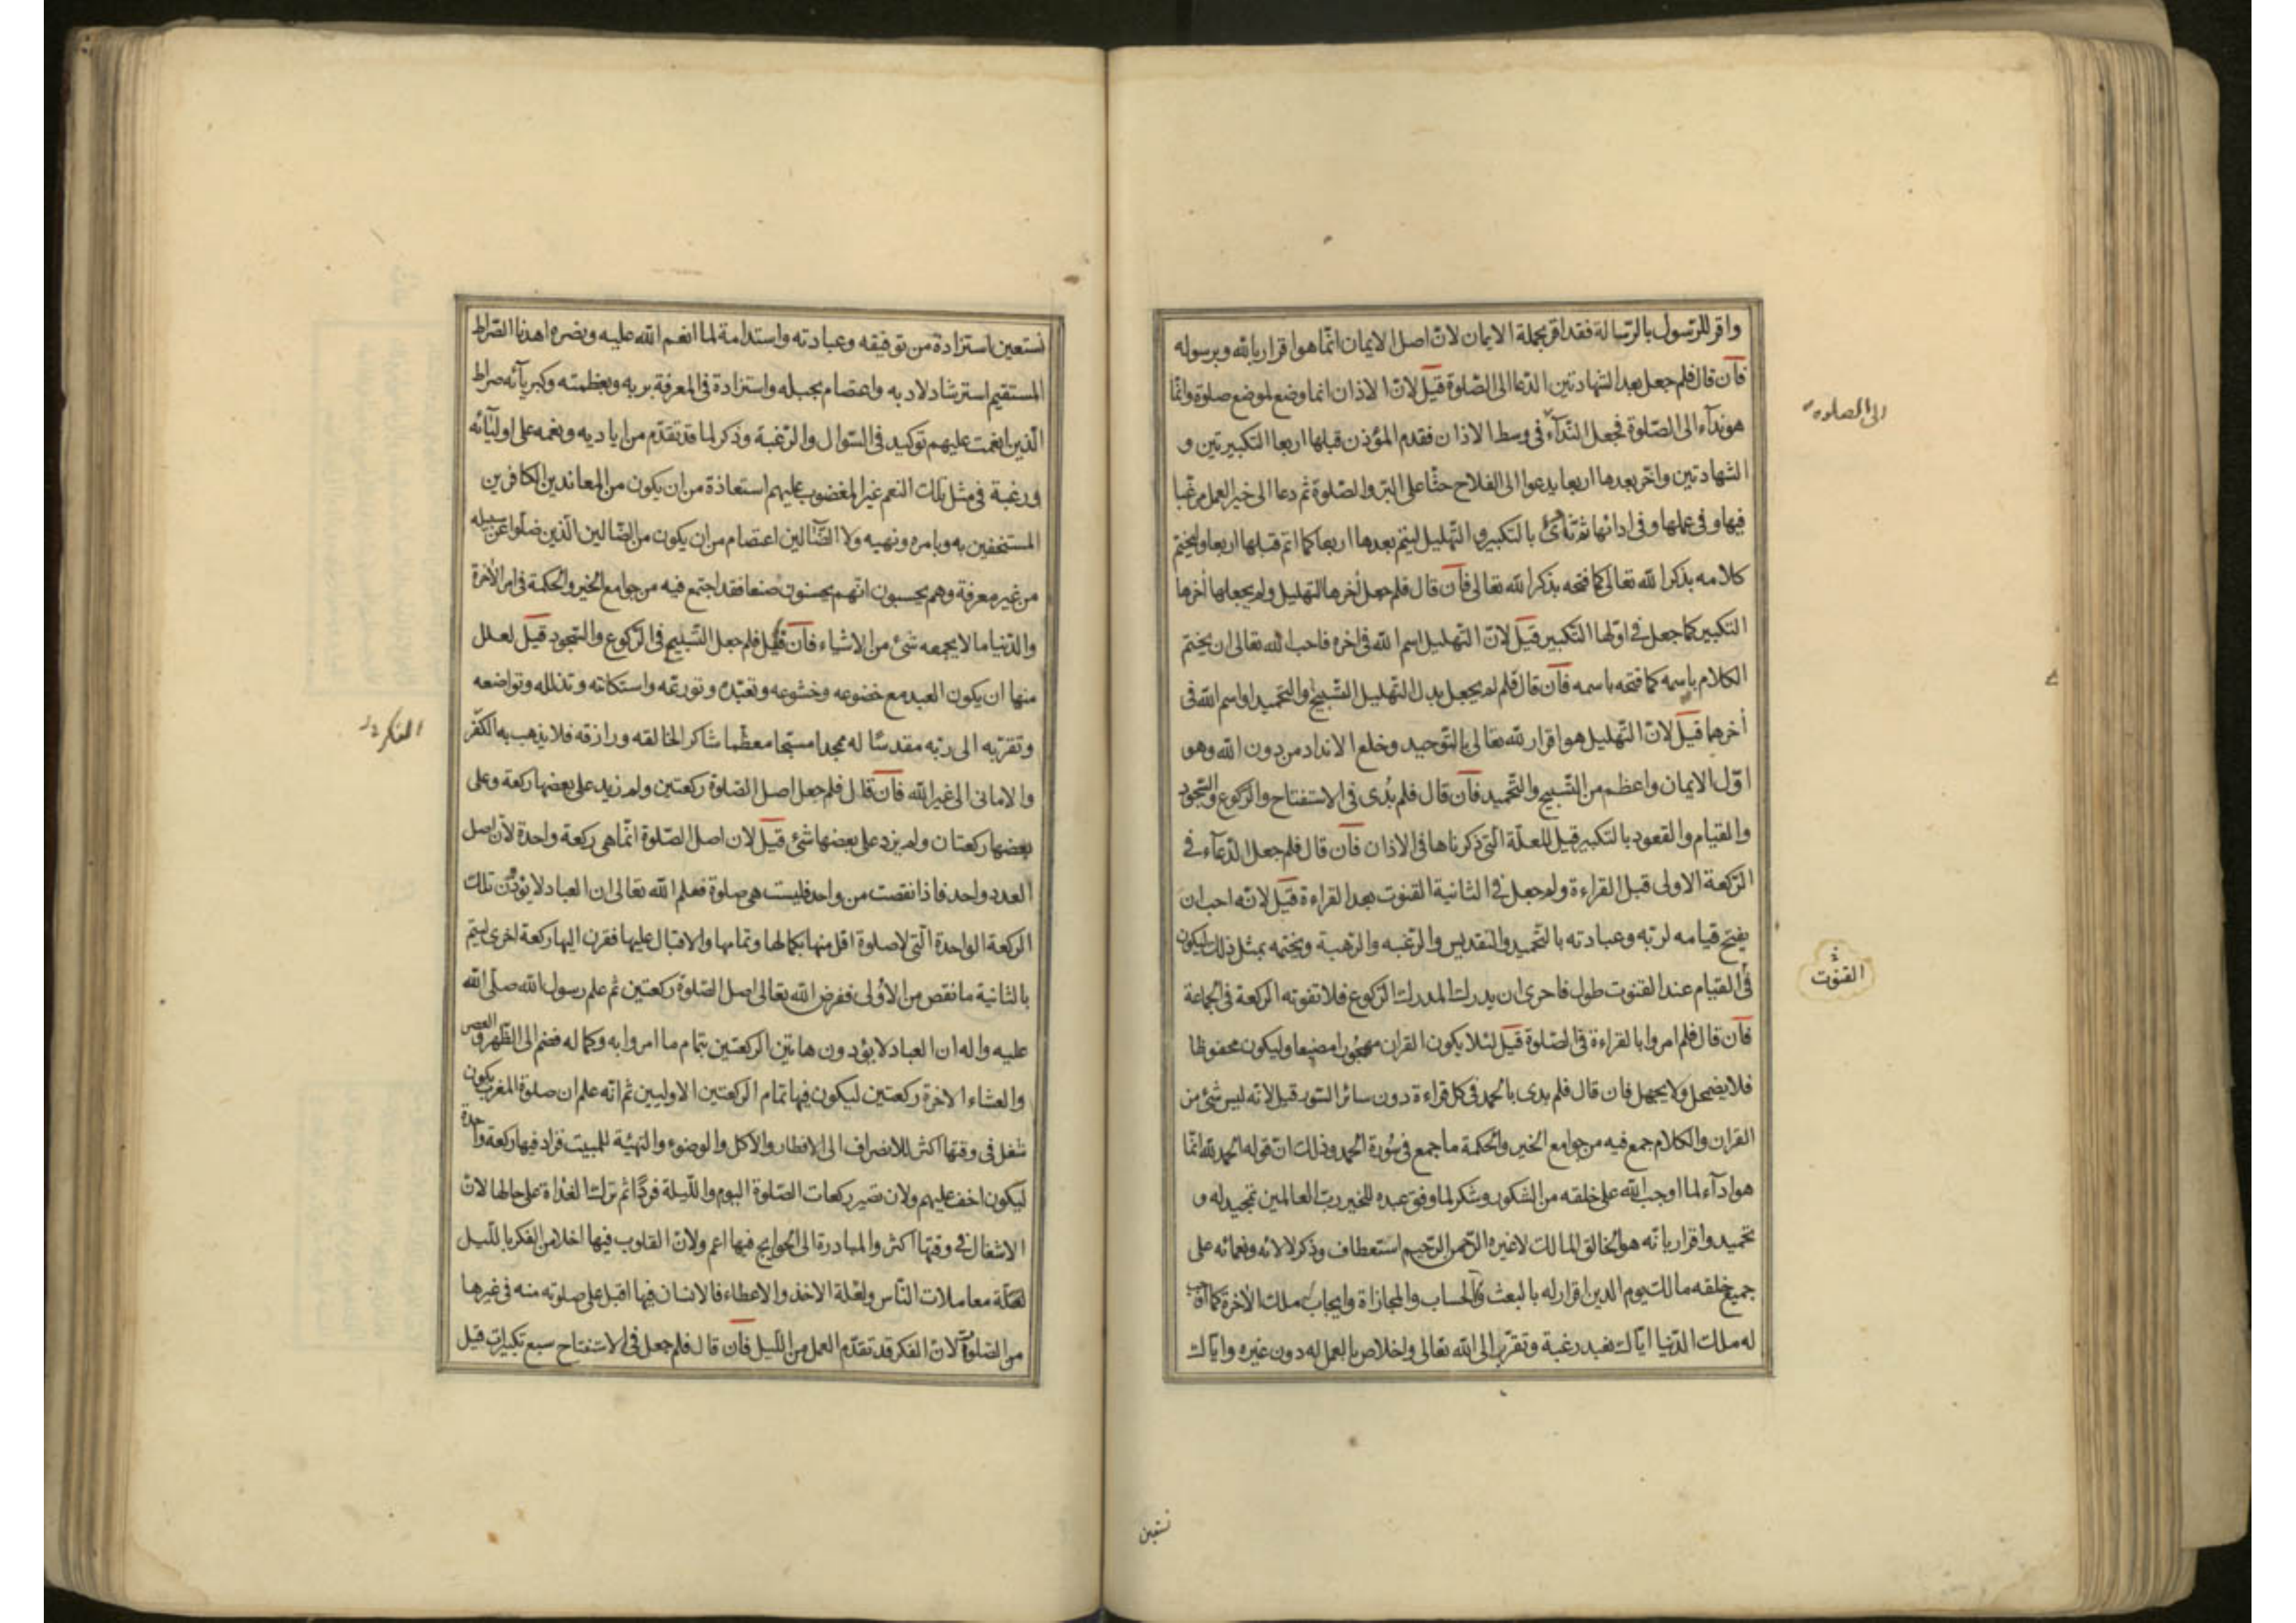 واقر للرّسول بالرّسالة فقد اقر بجملة الايمان لانّ اصل الايمان انّما هو اقرار بالله وبرسوله
فان قال فلم جعل بعد الشهادتين الدّعا الى الصّلوة قيل لانّ الاذان انما وضع لموضع صلوة وانّما
هو ندآء الى الصّلوة فجعل النّدآء فى وسط الاذان فقدم المؤذن قبلها اربعا التكبيرتين و
الشهادتين واخّر بعدها اربعا يدعوا الى الفلاح حثّا على البرّ والصّلوة ثم دعا الى خير العمل مرغّبا
فيها وفى عملها وفى ادائها ثم نادى بالتكبير والتّهليل ليتم بعدها اربعا كما اتم قبلها اربعا وليختم
كلامه بذكر الله تعالى كما فتحه بذكر الله تعالى فان قال فلم جعل أخرها التهليل ولم يجعلها أخرها
التكبير كما جعل فى اوّلها التكبير قيل لانّ التهليل اسم الله فى اخره فاحب الله تعالى ان يختم
الكلام باسمه كما فتحه باسمه فان قال فلم لم يجعل بدل التهليل التسبيح والتحميد واسم الله فى
أخرهما قيل لانّ التهليل هو اقرار لله تعالى بالتوحيد وخلع الانداد من دون الله وهو
اوّل الايمان واعظم من التسبيح والتّحميد فان قال فلم بُدى فى الاستفتاح والركوع والسّجود
والقيام والقعود بالتكبير قيل للعلّة الّتى ذكرناها فى الاذان فان قال فلم جعل الدّعآء فى
الرّكعة الاولى قبل القراءة ولم جعل فى الثانية القنوت بعد القراءة قيل لانّه احب ان
يفتح قيامه لربّه وعبادته بالتّحميد والتقديس والرّغبه والرّهبة ويختمه بمثل ذلك ليكون
فى القيام عند القنوت طول فاحرى ان يدرك المدرك الرّكوع فلا تفوته الركعة فى الجماعة
فان قال فلم امروا بالقراءة فى الصّلوة قيل لئلا يكون القران مهجورا مضيعا وليكون محفوظا
فلا يضمحل ولا يجهل فان قال فلم بدى بالحمد فى كل قراءة دون سائر السّور قيل لانّه ليس شئ من
القران والكلام جمع فيه من جوامع الخير والحكمة ما جمع فى سُورة الحمد وذلك انّ قوله الحمد لله انّما
هو ادآء لما اوجب الله على خلقه من الشكور وشكر لما وفق عبده للخير ربّ العالمين تمجيد له و
تحميد واقرار بانّه هو الخالق المالك لا غيره الرّحمن الرّحيم استعطاف وذكر لالائه ونعمائه على
جميع خلقه مالك يوم الدين اقرار له بالبعث والحساب والمجازاة وايجاب له ملك الأخرة كما اوجب
له ملك الدّنيا ايّاك نعبد رغبة وتقرّب الى الله تعالى واخلاص بالعمل له دون غيره وايّاك
الى الصلوة
القنوت
نستعين
نستعين استزادة من توفيقه وعبادته واستدامة لما انعم الله عليه وبصره اهدنا الصّراط
المستقيم استرشاد لادبه واعتصام بحبله واستزادة فى المعرفة بربه وبعظمته وكبريآئه صراط
الّذين انعمت عليهم توكيد فى السّوال والرّغبة وذكر لما قد تقدّم من اياديه ونعمه على اوليآئه
ورغبة فى مثل تلك النعم غير المغضوب عليهم استعاذة من ان يكون من المعاندين الكافرين
المستخفين به وبامره ونهيه ولا الضّآلين اعتصام من ان يكون من الضّالين الّذين ضلّوا عن سبيله
من غير معرفة وهم يحسبون انّهم يحسنون صنعا فقد اجتمع فيه من جوامع الخير والحكمة فى امر الأخرة
والدّنيا ما لا يجمعه شئ من الاشياء فان قيل فلم جعل التّسبيح فى الرّكوع والسّجود قيل لعلل
منها ان يكون العبد مع خضوعه وخشوعه وتعبّده وتورّعه واستكانته وتذلله وتواضعه
وتقربّه الى ربّه مقدسًا له ممجدا مسبّحا معظّما شاكرا لخالقه ورازقه فلا يذهب به الكفّر
والامانى الى غير الله فان قال فلم جعل اصل الصّلوة ركعتين ولم زيد على بعضها ركعة وعلى
بعضها ركعتان ولم يزد على بعضها شئ قيل لان اصل الصّلوة انّما هى ركعة واحدة لأن اصل
العدد واحد فاذا نقصت من واحد فليست هى صلوة فعلم الله تعالى ان العباد لا يؤدّن تلك
الركعة الواحدة الّتى لا صلوة اقل منها بكمالها وتمامها والاقبال عليها فقرن اليها ركعة اخرى ليتم
بالثانية ما نقص من الاُولى ففرض الله تعالى اصل الصّلوة ركعتين ثم علم رسول الله صلّى الله
عليه واله ان العباد لا يؤدون هاتين الركعتين بتمام ما امروا به وكماله فضم الى الظّهر والعصر
والعشاء الاخرة ركعتين ليكون فيها تمام الركعتين الاوليين ثم انّه علم ان صلوة المغرب يكون
شغل فى وقتها اكثر للانصراف الى الافطار والأكل والوضوء والتهيّة للمبيت فزاد فيها ركعة واحدة
ليكون اخف عليهم ولان تصير ركعات الصّلوة اليوم واللّيلة فردًا ثم ترك الغداة على حالها لانّ
الاشغال فى وقتها اكثر والمبادرة الى الحوايج فيها اعم ولانّ القلوب فيها اخلا من الفكر بالليل
لقلّة معاملات النّاس ولقلة الاخذ والاعطاء فالانسان فيها اقبل على صلوته منه فى غيرها
من الصّلوة لانّ الفكر قد تقدّم العمل من اللّيل فان قال فلم جعل فى الاستفتاح سبع تكبيرات قيل
الفكر